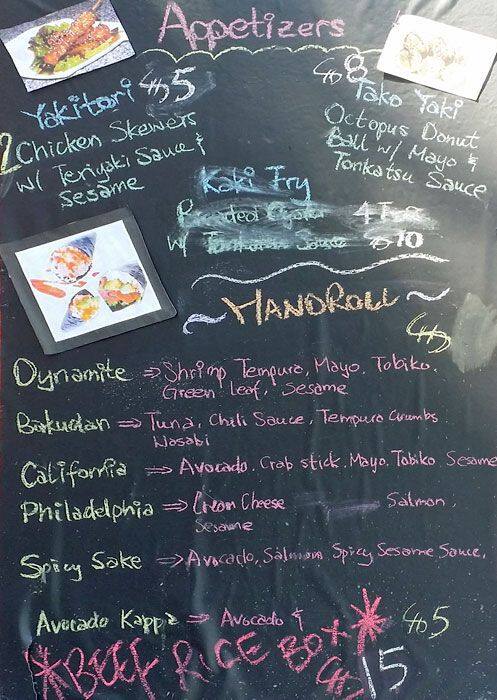 Appetizers
Yakitori $5
2 Chicken Skewers
w/ Teriyaki Sauce &
Sesame
$8
Tako Yaki
Octopus Donut
Ball w/ Mayo &
Tonkatsu Sauce
Kaki Fry
Breaded 4
w/ Tonkatsu Sauce $10
~ HANDROLL ~
Dynamite ⇒ Shrimp Tempura, Mayo, Tobiko,
Green Leaf, Sesame
Bakudan ⇒ Tuna, Chili Sauce, Tempura Crumbs
Wasabi
California ⇒ Avocado, Crab stick, Mayo, Tobiko, Sesame
Philadelphia ⇒ Cream Cheese Salmon,
Sesame
Spicy Sake ⇒ Avocado, Salmon, Spicy Sesame Sauce,
Avocado Kappa ⇒ Avocado & $5
*BEEF RICE BOX* $15